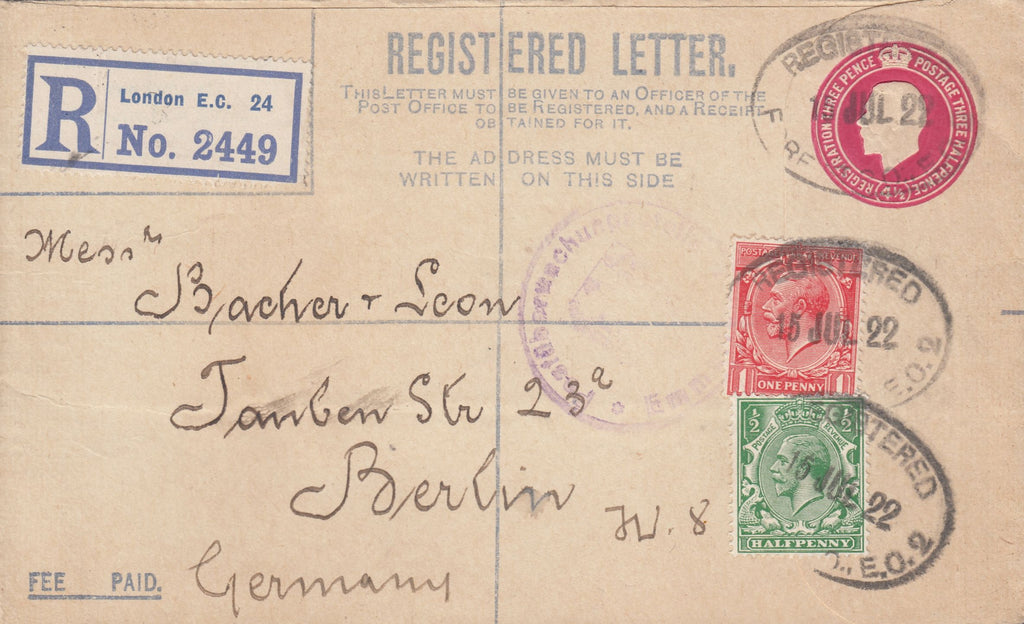 REGISTERED LETTER.
THIS LETTER MUST BE GIVEN TO AN OFFICER OF THE
POST OFFICE TO BE REGISTERED, AND A RECEIPT
OBTAINED FOR IT.
THE ADDRESS MUST BE
WRITTEN ON THIS SIDE
R
London E.C. 24
No. 2449
REGISTRATION THREE PENCE POSTAGE THREE HALFPENCE
JUL 22
Mess rs
Bacher & Leon
Tauben Str 23a
Berlin W. 8
Germany
FEE PAID.
POSTAGE REVENUE
1 ONE PENNY 1
REGISTERED
15 JUL 22
E.O. 2
½ ½
POSTAGE REVENUE
HALFPENNY
ISTERED
15 JUL 22
E.O. 2